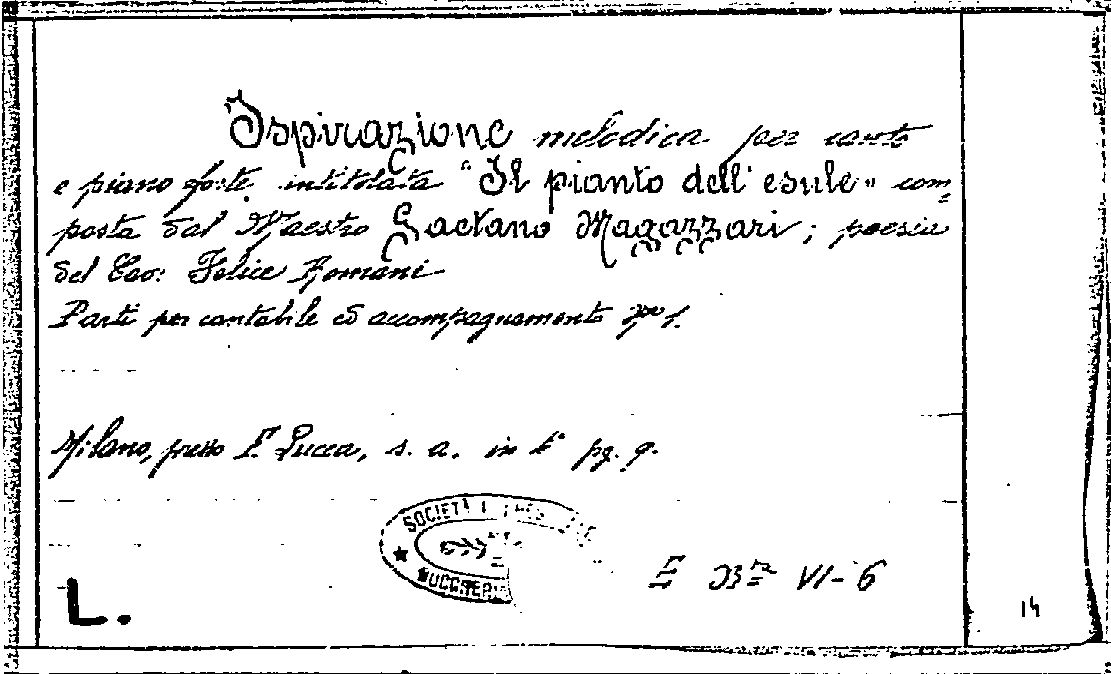 Ispirazione melodica per canto
e piano forte intitolata "Il pianto dell' esule" com=
posta dal Maestro Gaetano Magazzari; poesia
del Cav: Felice Romani
Parti per cantabile ed accompagnamento
Milano, presso F. Lucca, s. a. in 4° pg. 9.
SOCIETÀ
E Bta VI-6
L.
14